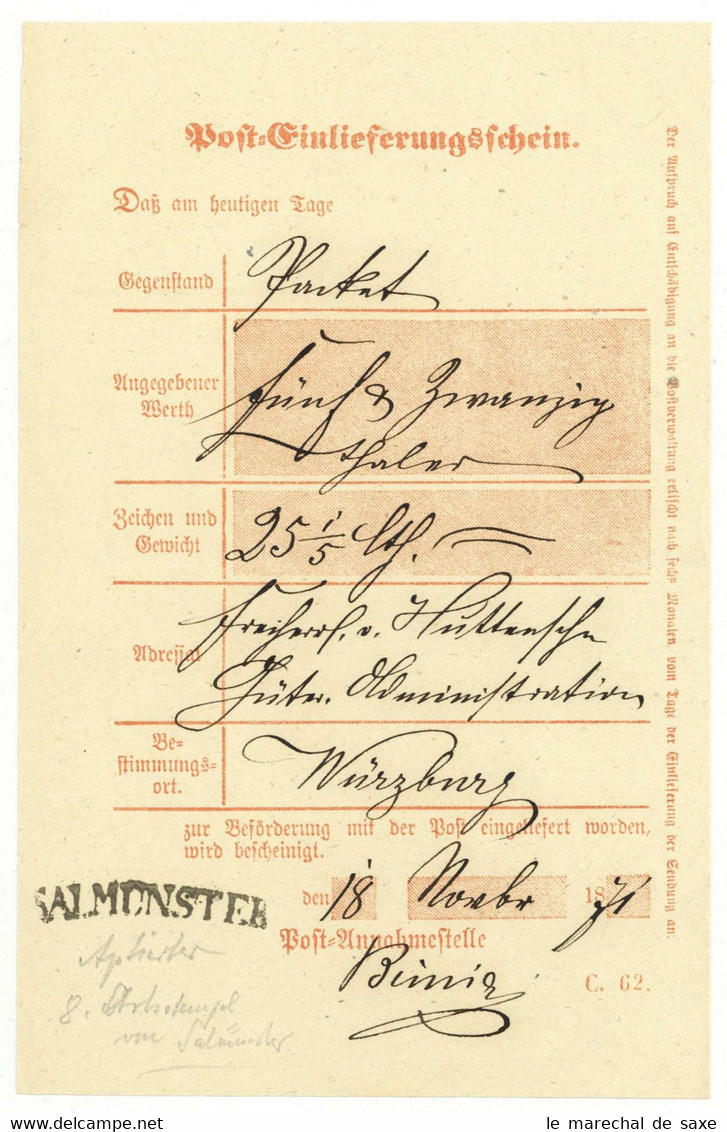 Post-Einlieferungsschein.
Daß am heutigen Tage
Gegenstand
Packet
Angegebener
Werth
fünf & Zwanzig
thaler
Zeichen und
Gewicht
25 1/5 lth.
Adressat
Freiherrl. v. Huttensche
Güter. Administration
Be-
stimmungs-
ort.
Würzburg
zur Beförderung mit der Post eingeliefert worden,
wird bescheinigt.
den 18 Novbr 1871
Post-Annahmestelle
C. 62.
SALMÜNSTER
Aptierter
8. Ortsstempel
von Salmünster
Der Anspruch auf Entschädigung an die Postverwaltung erlischt nach sechs Monaten vom Tage der Einlieferung der Sendung an.
le marechal de saxe